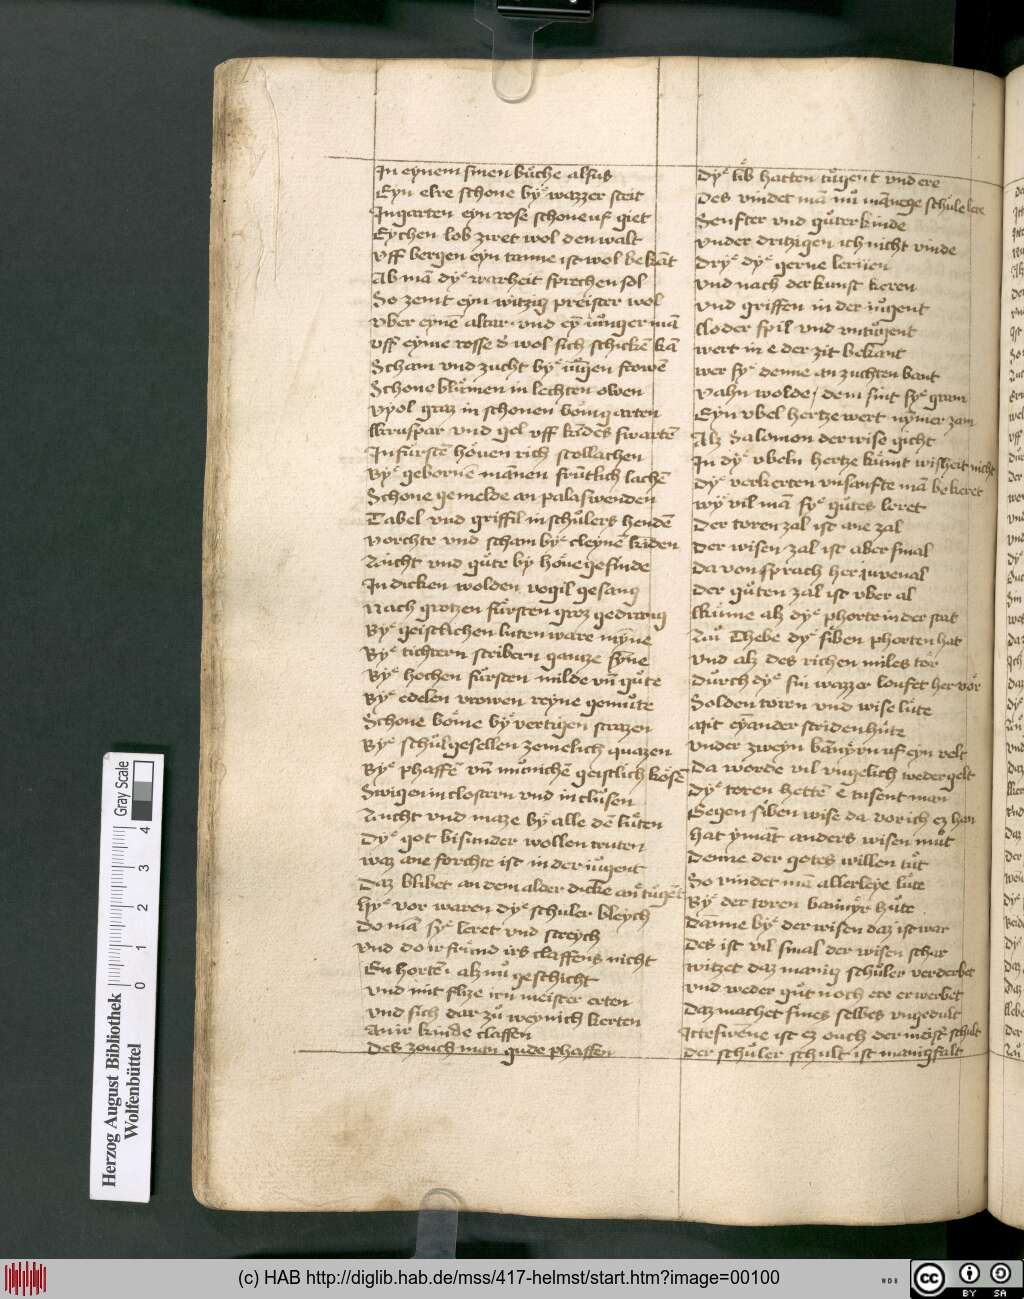 In eynem sinen buͤche alsus
Eyn elre schone byͤ wazzer steit
In garten eyn rose schone uf giet
Eychen lob ziret wol den walt
Uff bergen eyn tanne ist wol bekāt
Ab mā dyͤ warheit sprechen sol
So zemt eyn witzig preister wol
Vber eynē altar · vnd eȳ iuͦnger mā
Vff eyme rosse d' wol sich schickē kā
Scham vnd zucht byͤ iuͦgen frowē
Schone bluͤmen in lechten owen
Vyol graz in schonen boͤmgarten
vnd gel vff
In fuͤrstē hoͤuen rich stollachen
Byͤ gebornē mannen fruͤntlich lachē
Schone gemelde an palas wenden
Tabel vnd griffil in schuͤlers hendē
Vorchte vnd scham byͤ cleynē kinden
Zucht vnd guͤte by hoͤue gesinde
In dicken wolden vogil gesang
Nach grotzen fuͤrsten groz gedrang
Byͤ geistlichen luten ware mynne
Byͤ tichtern scribern gantze synne
Byͤ hochen fuͤrsten milde vn̄ guͤte
Byͤ edelen vrowen reyne gemuͤte
Schone boͤme byͤ vertigen strazen
Byͤ schuͤlgesellen zemelich quazen
Byͤ phaffē vn̄ muͦnichē geistlich koͤsē
Swigen in clostern vnd in cluͦsen
Zucht vnd maze byͤ alle dē luͤten
Dyͤ got bisunder wollen truten
Waz ane forchte ist in der iuͦgent
Daz blibet an dem alder dicke an tuͦgēt
Hyͤ vor waren dyͤ schuler bleych
Do mā syͤ leret vnd streych
Vnd do ir friͤnd irs claffens nicht
En hortē · alz nuͦ geschicht
Vnd mit flize irn meister erten
Vnd sich dar zuͦ wenich kerten
An ir kinde claffen
Des zouch man gude phaffen
Dyͤ lib hatten tuͦgent vnd ere
Des vindet mā nuͦ manege schuͤle lere
Senfter vnd guͤter kinde
Vnder dritzigen ich nicht vinde
Dryͤ dyͤ gerne lernen
Vnd nach der kunst keren
Vnd griffen in der iuͦgent
loder spil vnd vntuͦgent
Wert in e der zit bekant
Wer syͤ denne an zuchten bant
Vahn wolde / dem sint syͤ gram
Eyn vbel hertze wert nȳmer zam
Alz Salomon der wise gicht
In dyͤ vbeln hertze kuͤmt wisheit nicht
Dyͤ verkerten vnsanfte mā bekeret
Wyͤ vil mā syͤ guͤtes leret
Der toren zal ist ane zal
Der wisen zal ist aber smal
Da von sprach her Juvenal
Der guͤten zal ist vber al
Kuͤme alz dyͤ phorte in der stat
Zuͦ Thebe dyͤ siben phorten hat
Vnd alz des richen niles tor
Durch dyͤ sin wazzer loufet her vor
Solden toren vnd wise luͤte
Mit eȳander striden huͤte
Vnder zweyn banyͤrn uf eyn velt
Da worde vil vngelich wedergelt
Dyͤ toren hettē e tusent man
Gegen siben wise da vor ich ez han
Hat ẏmāt anders wisen muͦt
Denne der gotes willen tuͦt
So vindet mā allerleye luͤte
Byͤ der toren banyͤr huͤte
Danne byͤ der wisen daz ist war
Des ist vil smal der wisen schar
Witzet daz manig schuͤler verderbet
Vnd weder guͦt noch ere erwerbet
Daz machet sines selbes vngedult
Etteswene ist ez ouch der meistr schult
Der schuͤler schult ist manigfalt
Herzog August Bibliothek
Wolfenbüttel
0 1 2 3 4
Gray Scale
(c) HAB http://diglib.hab.de/mss/417-helmst/start.htm?image=00100
WDB
cc BY SA